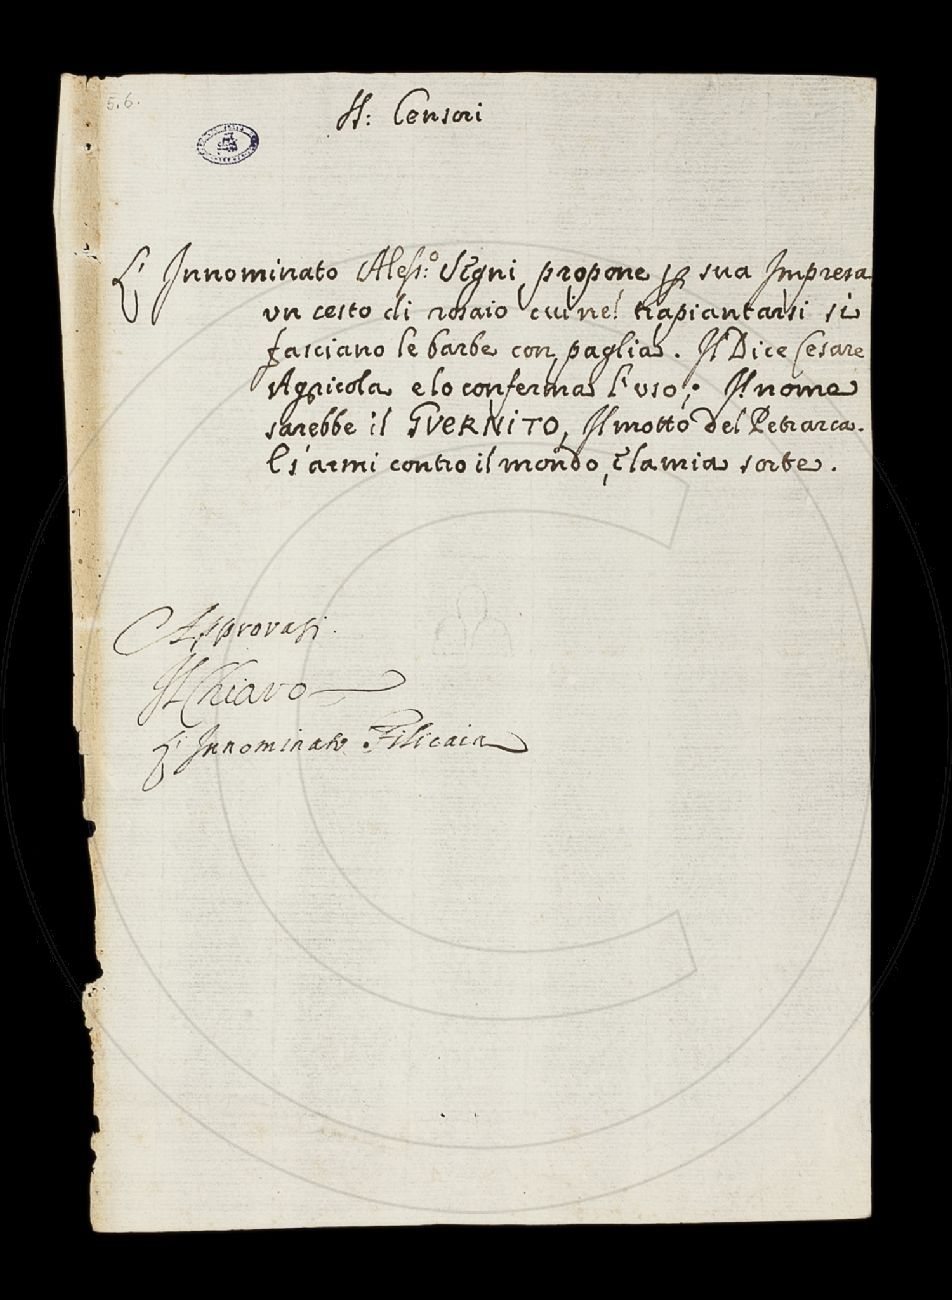 5.6.
SS: Censori
L'Innominato Aless:o Segni, propone p sua Impresa
un cesto di rosaio cui nel trapiantarsi si
fasciano le barbe con paglia. Il Dice Cesare
Agricola e lo conferma l'uso; Il nome
sarebbe il GUERNITO, Il motto del Petrarca.
E s'armi contro il mondo, e la mia sorte.
Approvasi
Il Chiaro
L'Innominato Filicaia